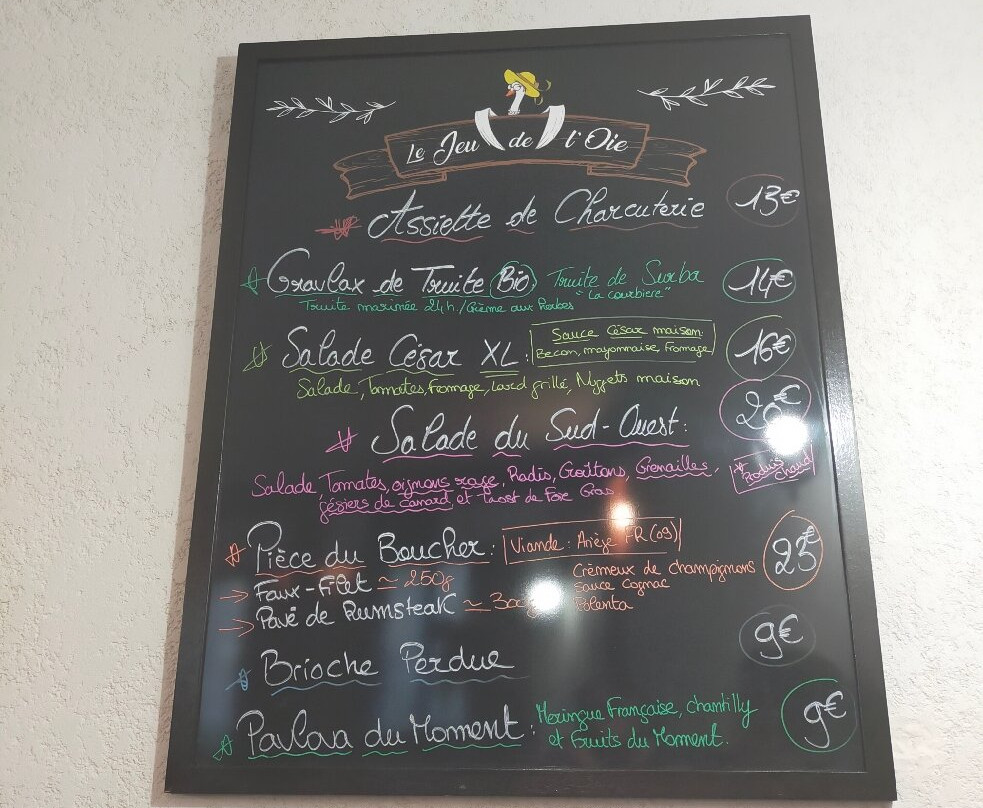 Le Jeu de l'Oie
Assiette de Charcuterie 13€
Gravlax de Truite Bio Truite de Surba 14€
"La Courbière"
Truite marinée 24h./Crème aux Herbes
Salade César XL : Sauce César maison: 16€
Becon, mayonnaise, fromage
Salade, Tomates, fromage, Lard grillé, Nuggets maison
Salade du Sud-Ouest:
Salade, Tomates, oignons rouge, Radis, Croûtons, Grenailles, *Produit chaud
gésiers de canard et Toast de Foie Gras
Pièce du Boucher: Viande: Ariège FR (09) 23€
→ Faux-Filet ≃ 250g Crèmeux de champignons
Sauce Cognac
→ Pavé de Rumsteak ≃ 300g Polenta
Brioche Perdue 9€
Pavlova du Moment : Meringue Française, chantilly 9€
et Fruits du Moment.